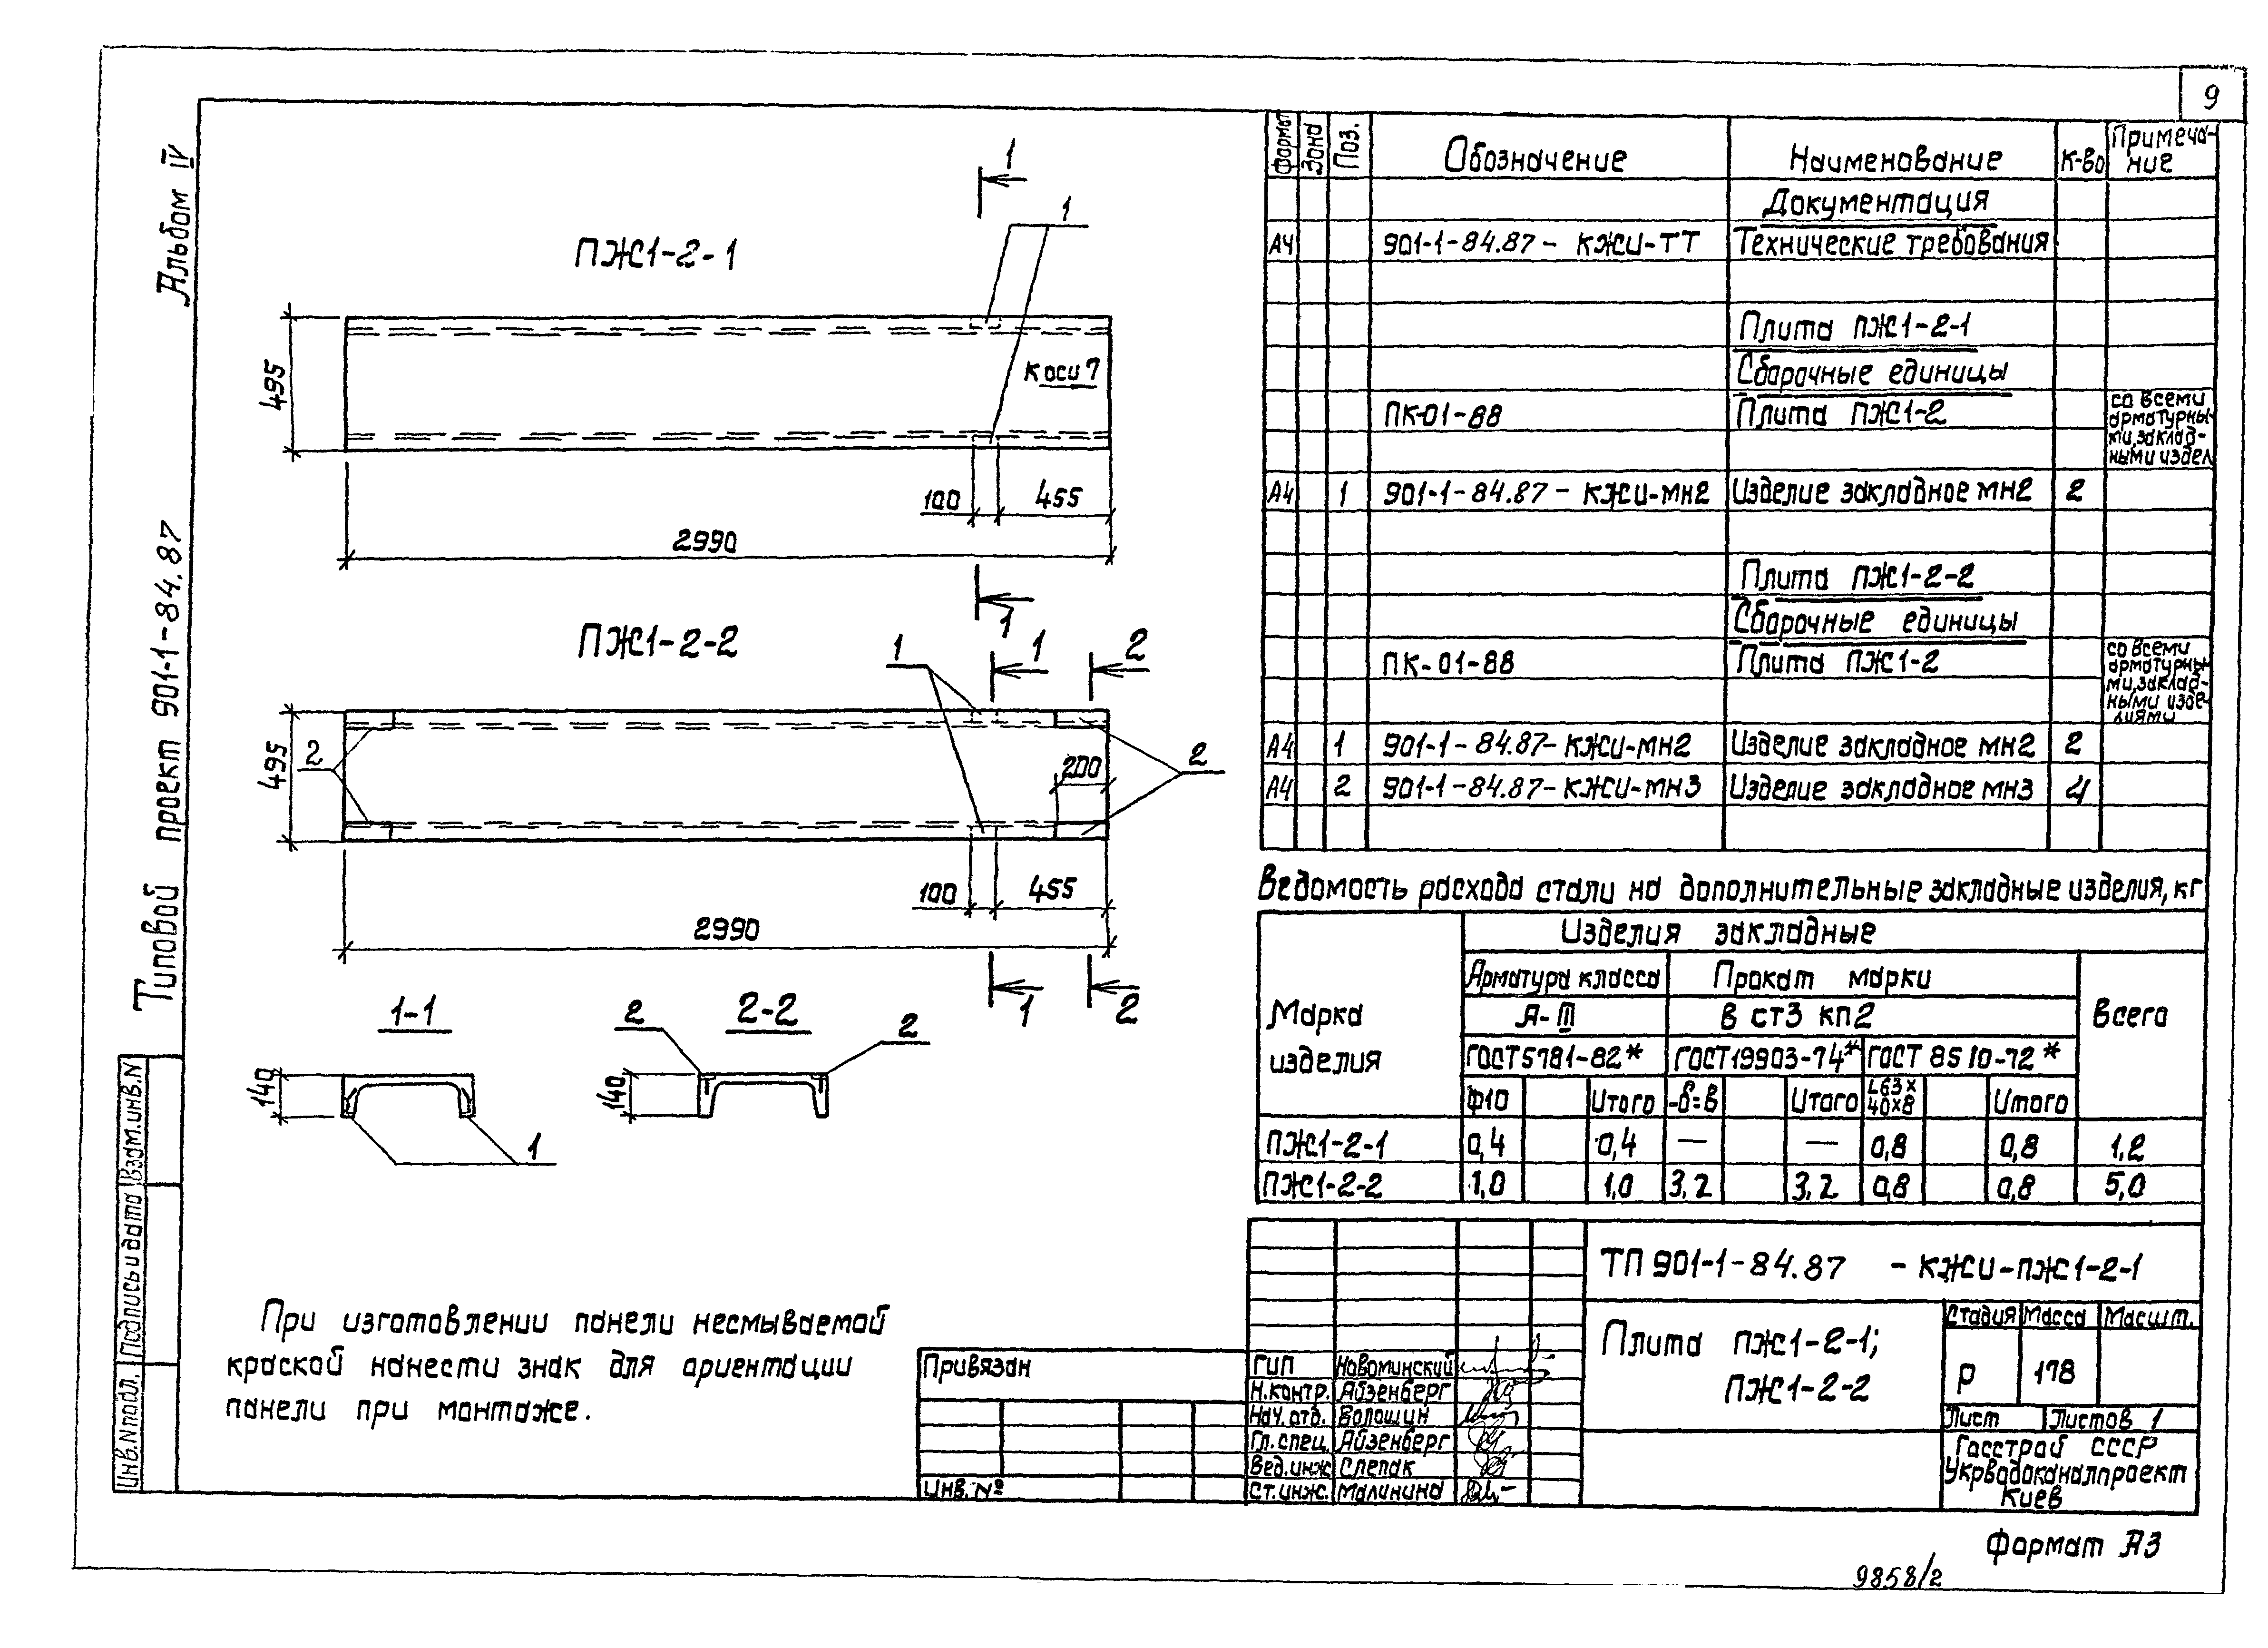 9
Альбом IV
Типовой проект 901-1-84.87
Взам.инв.N
Подпись и дата
Инв.N подл.
ПЖ1-2-1
1
1
495
к оси 7
100
455
2990
1
ПЖ1-2-2
1
1
2
495
2
200
2
100
455
2990
1
2
1-1
140
1
2-2
2
2
140
При изготовлении панели несмываемой
краской нанести знак для ориентации
панели при монтаже.
Формат Зона Поз. Обозначение Наименование К-во Примеча-
ние
Документация
А4 901-1-84.87- КЖИ-ТТ Технические требования
Плита ПЖ1-2-1
Сборочные единицы
ПК-01-88 Плита ПЖ1-2 со всеми
арматурны-
ми, заклад-
ными издел
А4 1 901-1-84.87- КЖИ-МН2 Изделие закладное МН2 2
Плита ПЖ1-2-2
Сборочные единицы
ПК-01-88 Плита ПЖ1-2 со всеми
арматурны-
ми, заклад-
ными изде-
лиями
А4 1 901-1-84.87-КЖИ-МН2 Изделие закладное МН2 2
А4 2 901-1-84.87-КЖИ-МН3 Изделие закладное МН3 4
Ведомость расхода стали на дополнительные закладные изделия, кг
Марка
изделия
Изделия закладные
Арматура класса Прокат марки Всего
А-III В ст3 кп2
ГОСТ 5781-82* ГОСТ 19903-74* ГОСТ 8510-72*
Ф10 Итого -δ=8 Итого L63х
40х8 Итого
ПЖ1-2-1 0,4 0,4 — — 0,8 0,8 1,2
ПЖ1-2-2 1,0 1,0 3,2 3,2 0,8 0,8 5,0
ТП 901-1-84.87 - КЖИ-ПЖ1-2-1
Плита ПЖ1-2-1;
ПЖ1-2-2
Стадия Масса Масшт.
Р 178
Лист Листов 1
Госстрой СССР
Укрводоканалпроект
Киев
Привязан
Инв. №
ГИП Новоминский
Н.контр. Айзенберг
Нач. отд. Волошин
Гл. спец. Айзенберг
Вед.инж Слепак
Ст.инж. Малинина
Формат А3
9858/2